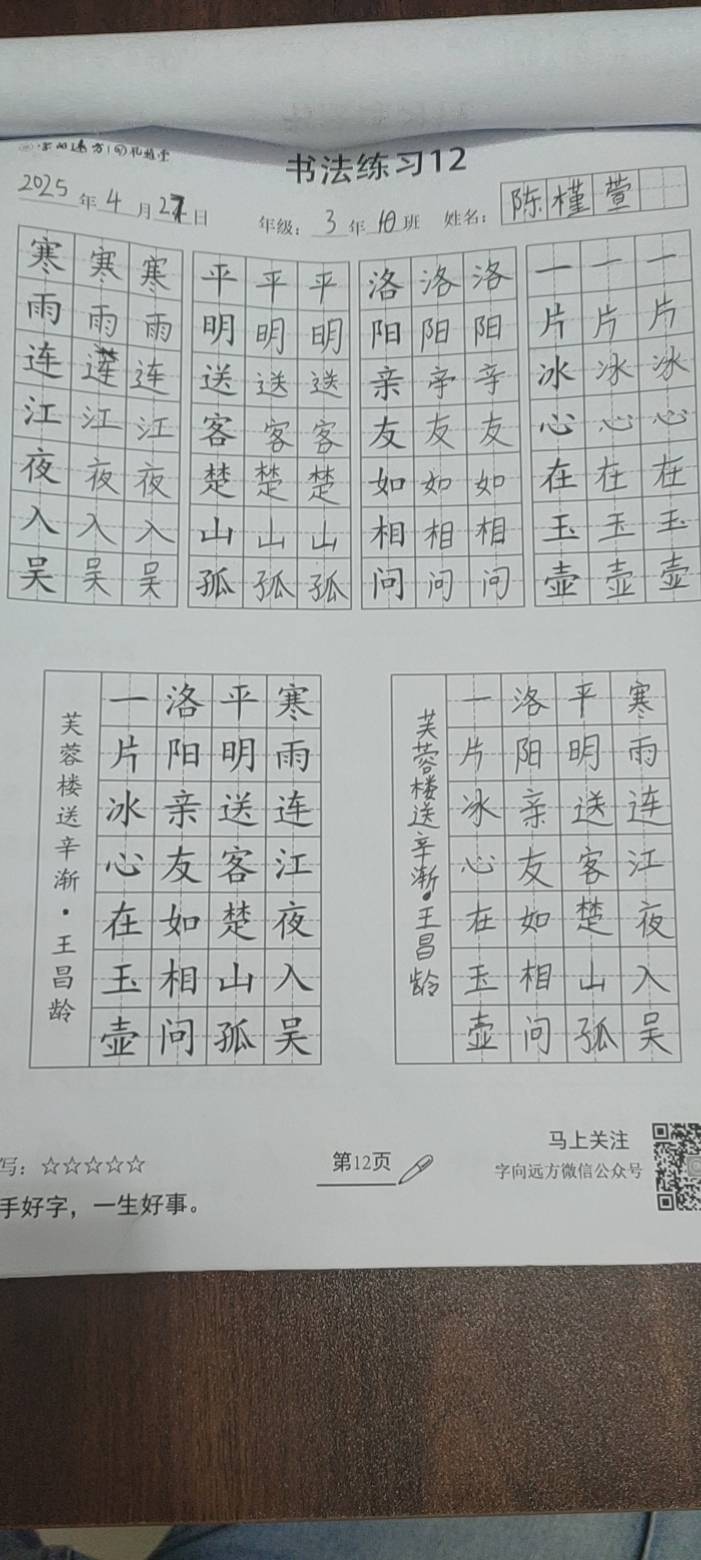 书法练习12
2025年4月27日 年级：3年10班 姓名：陈槿萱
寒寒寒 平平平 洛洛洛 一一一
雨雨雨 明明明 阳阳阳 片片片
连连连 送送送 亲亲亲 冰冰冰
江江江 客客客 友友友 心心心
夜夜夜 楚楚楚 如如如 在在在
入入入 山山山 相相相 玉玉玉
吴吴吴 孤孤孤 问问问 壶壶壶
寒雨连江夜入吴
平明送客楚山孤
洛阳亲友如相问
一片冰心在玉壶
芙蓉楼送辛渐·王昌龄
寒雨连江夜入吴
平明送客楚山孤
洛阳亲友如相问
一片冰心在玉壶
芙蓉楼送辛渐·王昌龄
写：☆☆☆☆☆
手好字，一生好事。
第12页
马上关注
字向远方微信公众号